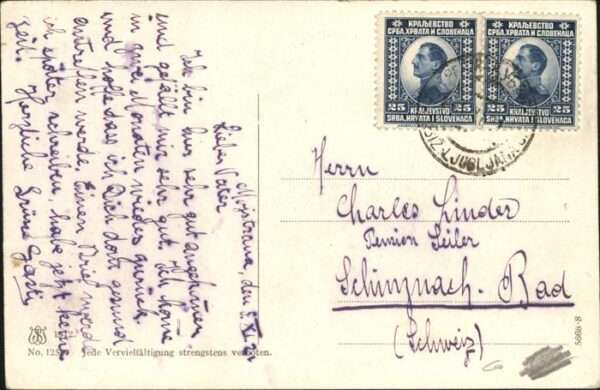 КРАЉЕВСТВО
СРБА, ХРВАТА И СЛОВЕНАЦА
25 KRALJEVSTVO 25
SRBA, HRVATA I SLOVENACA
КРАЉЕВСТВО
СРБА, ХРВАТА И СЛОВЕНАЦА
25 KRALJEVSTVO 25
SRBA, HRVATA I SLOVENACA
LJUBLJANA
Mojstrana, den
Lieber Vater
Ich bin hier sehr gut angekommen
und gefällt mir sehr gut. Ich komme
in zwei Monaten wieder zurück
und hoffe dass ich Dich dort gesund
antreffen werde. Einen Brief werde
ich später schreiben, habe jetzt keine
Zeit. Herzliche Grüsse
Herrn
Charles Linder
Pension Seiler
Schinznach-Bad
(Schweiz)
No. 12
Jede Vervielfältigung strengstens verboten.
8-8995